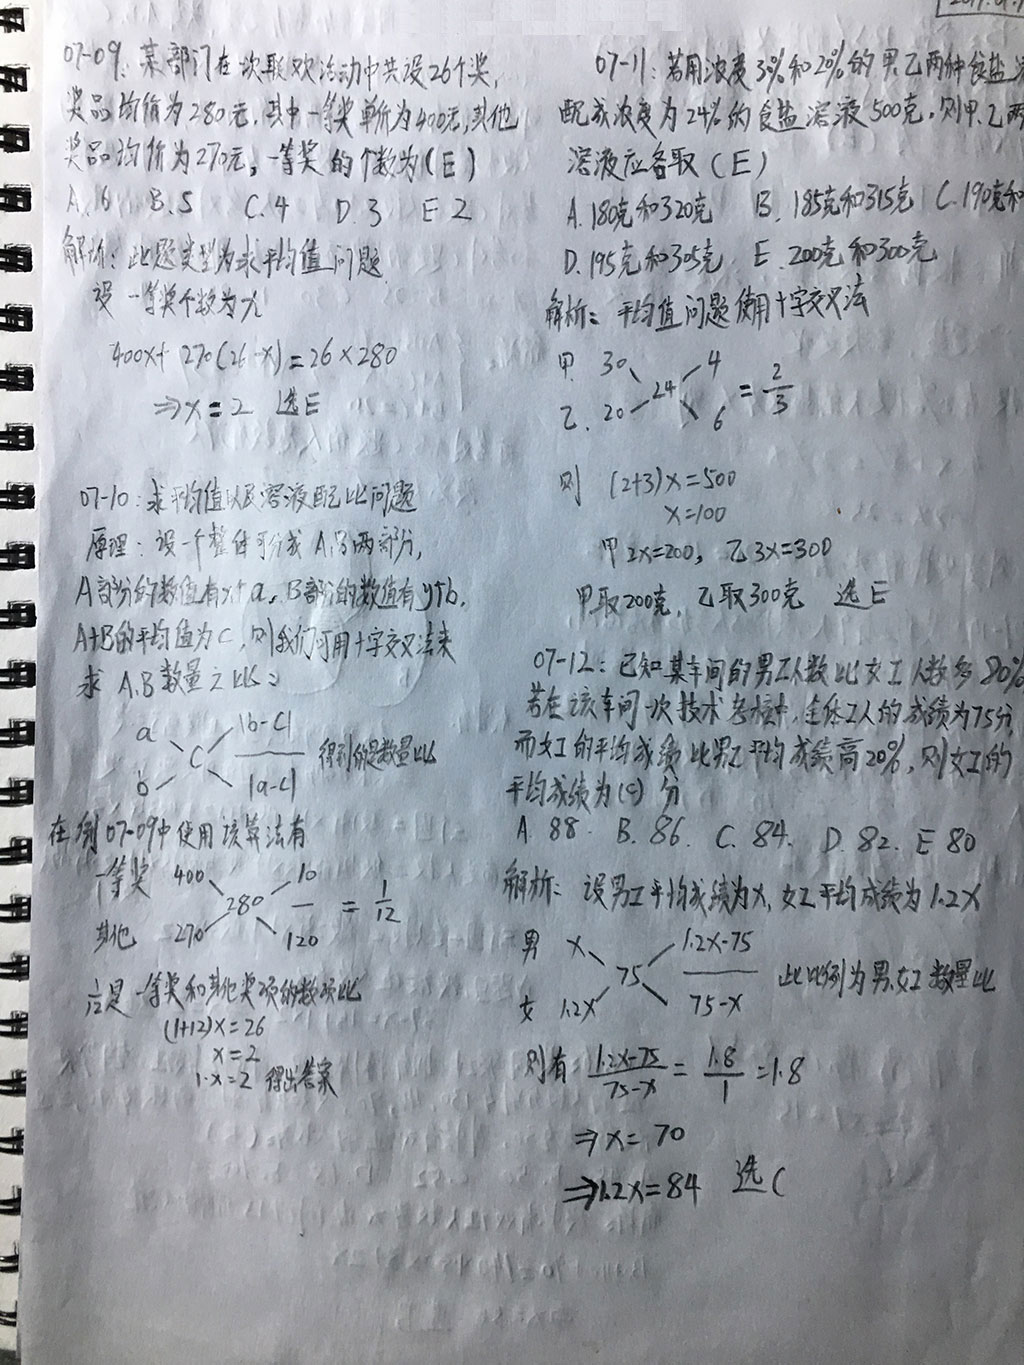 07-09：某部门在一次联欢活动中共设26个奖，
奖品均价为280元，其中一等奖单价为400元，其他
奖品均价为270元，一等奖的个数为(E)
A.6 B.5 C.4 D.3 E 2
解析：此题类型为求平均值问题
设一等奖个数为x
400x+270(26-x)=26×280
⇒x=2 选E
07-10：求平均值以及溶液配比问题
原理：设一个整体可分成A,B两部分，
A部分的数值有y个a，B部分的数值有y个b，
A+B的平均值为C，则我们可用十字交叉法来
求A,B数量之比：
a |b-c|
C 得到的是数量比
b |a-c|
在例07-09中使用该算法有
一等奖 400 10
280 = 1/12
其他 270 120
这是一等奖和其他奖项的数项比
(1+12)x=26
x=2
1·x=2 得出答案
07-11：若用浓度30%和20%的甲、乙两种食盐
配成浓度为24%的食盐溶液500克，则甲、乙两
溶液应各取(E)
A.180克和320克 B.185克和315克 C.190克和
D.195克和305克 E.200克和300克
解析：平均值问题使用十字交叉法
甲. 30 4
24 = 2/3
乙. 20 6
则 (2+3)x=500
x=100
甲2x=200，乙3x=300
甲取200克，乙取300克 选E
07-12：已知某车间的男工人数比女工人数多80%
若在该车间一次技术考核中，全体工人的成绩为75分，
而女工的平均成绩比男工平均成绩高20%，则女工的
平均成绩为(C)分
A.88. B.86. C.84. D.82. E 80
解析：设男工平均成绩为x，女工平均成绩为1.2x
男 x 1.2x-75
75 此比例为男、女工数量比
女 1.2x 75-x
则有 (1.2x-75)/(75-x) = 1.8/1 = 1.8
⇒x=70
⇒1.2x=84 选C